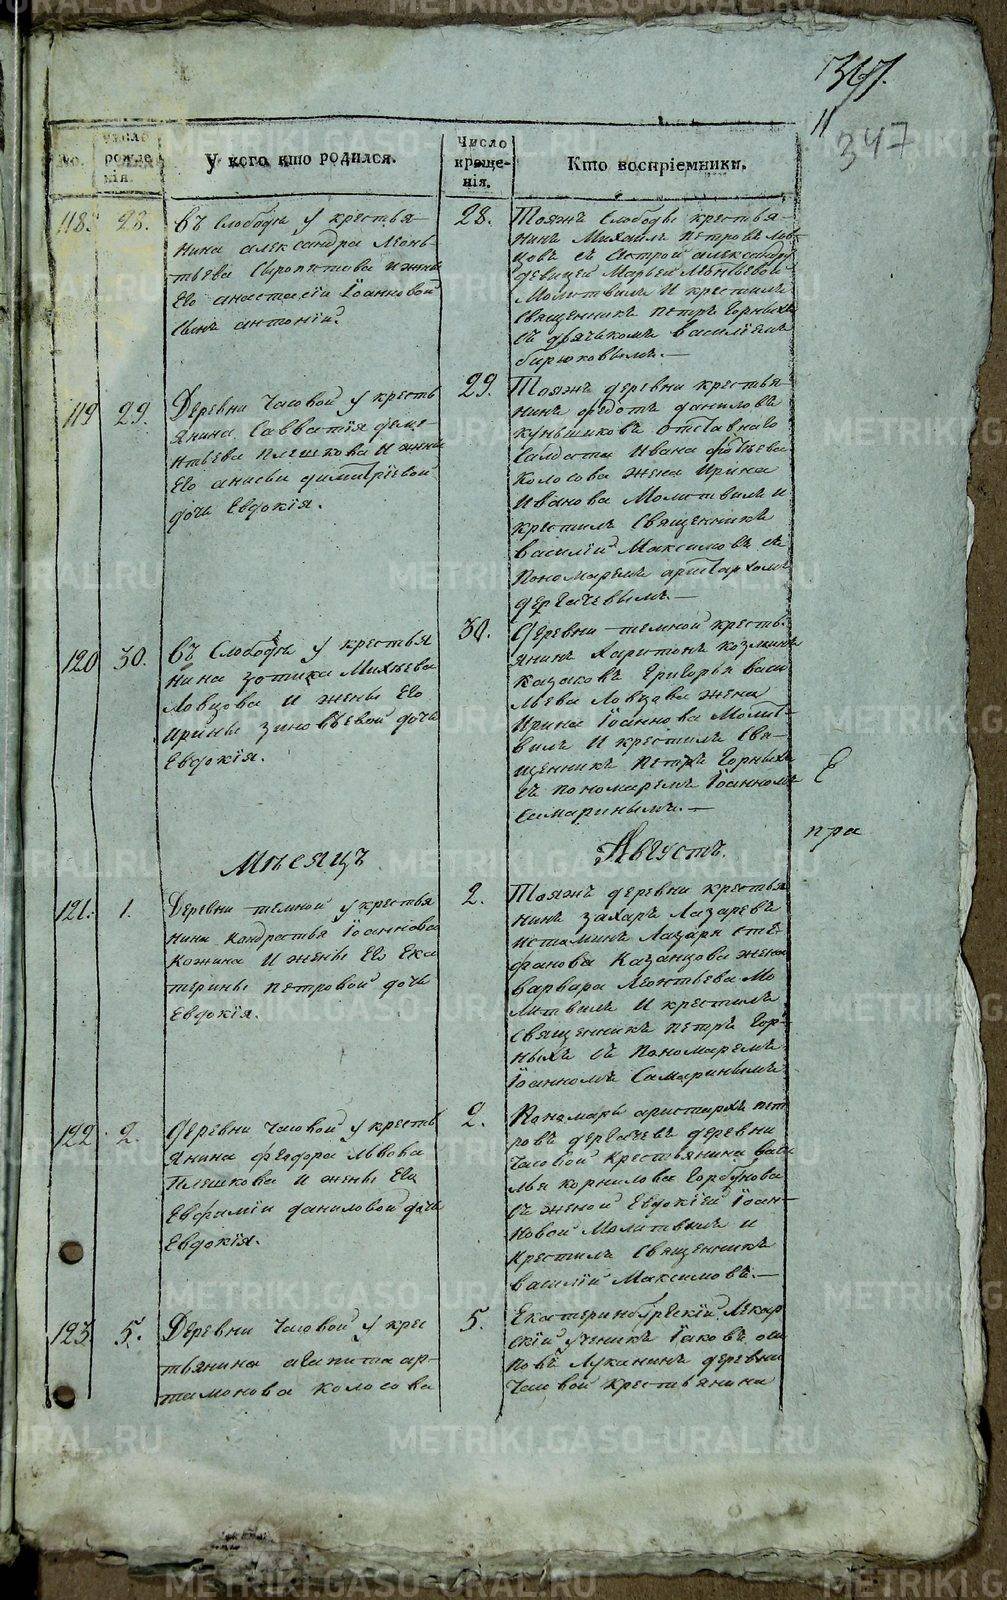 347.
11
347
№.
число рожденія.
У кого кто родился.
Число крещенія.
Кто воспріемники.
118. 28.
Въ Слободѣ у крестья-
нина александра Леонь-
тьева Сыропятова и жены
Его анастасіи Іоанновой
Сынъ антоній.
28.
Тояжъ Слободы крестья-
нинъ Михаилъ петровъ Лов-
цовъ съ Сестрой александры
девицей Марьей
Молитвилъ И крестилъ
Священникъ петръ Горныхъ
съ дьячькомъ василіемъ
бирюковымъ.—
119 29.
Деревни Часовой у кресть
янина Савватія деме-
нтьева плешкова И жены
Его анисьи димитріевой
дочь Евдокія.
29.
Тояжъ деревни крестья-
нинъ федотъ даниловъ
куньщиковъ отставнаго
Салдата Ивана
колосова жена Ирина
Иванова Молитвилъ и
крестилъ Священникъ
василій Максимовъ съ
пономаремъ аристархомъ
дергачевымъ.—
120 30.
Въ Слободѣ у крестья
нина зотика Михѣева
Ловцова И жены Его
Ирины зиновьевой дочь
Евдокія.
30.
Деревни темной кресть-
янинъ Харитонъ козминъ
казаковъ Григорья васи
льева Ловцова жена
Ирина Іоаннова Молит-
вилъ И крестилъ Свя-
щенникъ петръ Горныхъ
съ пономаремъ Іоанномъ
Самаринымъ.—
пра
Мѣсяцъ
Августъ.
121. 1.
Деревни темной у крестья
нина кондратья Іоаннова
кожина И жены Его Ека
терины петровой дочь
Евдокія.
2.
Тояжъ деревни крестья
нинъ захаръ Лазаревъ
истоминъ Лазаря сте-
фанова Казанцова жена
варвара Леонтьева Мо
литвилъ И крестилъ
Священникъ петръ Гор-
ныхъ съ пономаремъ
Іоанномъ Самаринымъ
122 2.
Деревни Часовой у кресть
янина феодора Львова
плешкова и жены Его
Евфаміи даниловой дочь
Евдокія.
2.
пономарь аристархъ пет
ровъ дергачевъ деревни
Часовой крестьянина васи
лья корнилова Горбунова
съ женой Евдокіей Іоан-
новой Молитвилъ и
крестилъ Священникъ
василій Максимовъ.—
123 5.
Деревни Часовой у крес
тьянина агапита ар-
тамонова колосова
5.
Екатеринбургскій Лекар
скій ученикъ Іаковъ оси
повъ Луканинъ деревни
Часовой крестьянина
METRIKI.GASO-URAL.RU